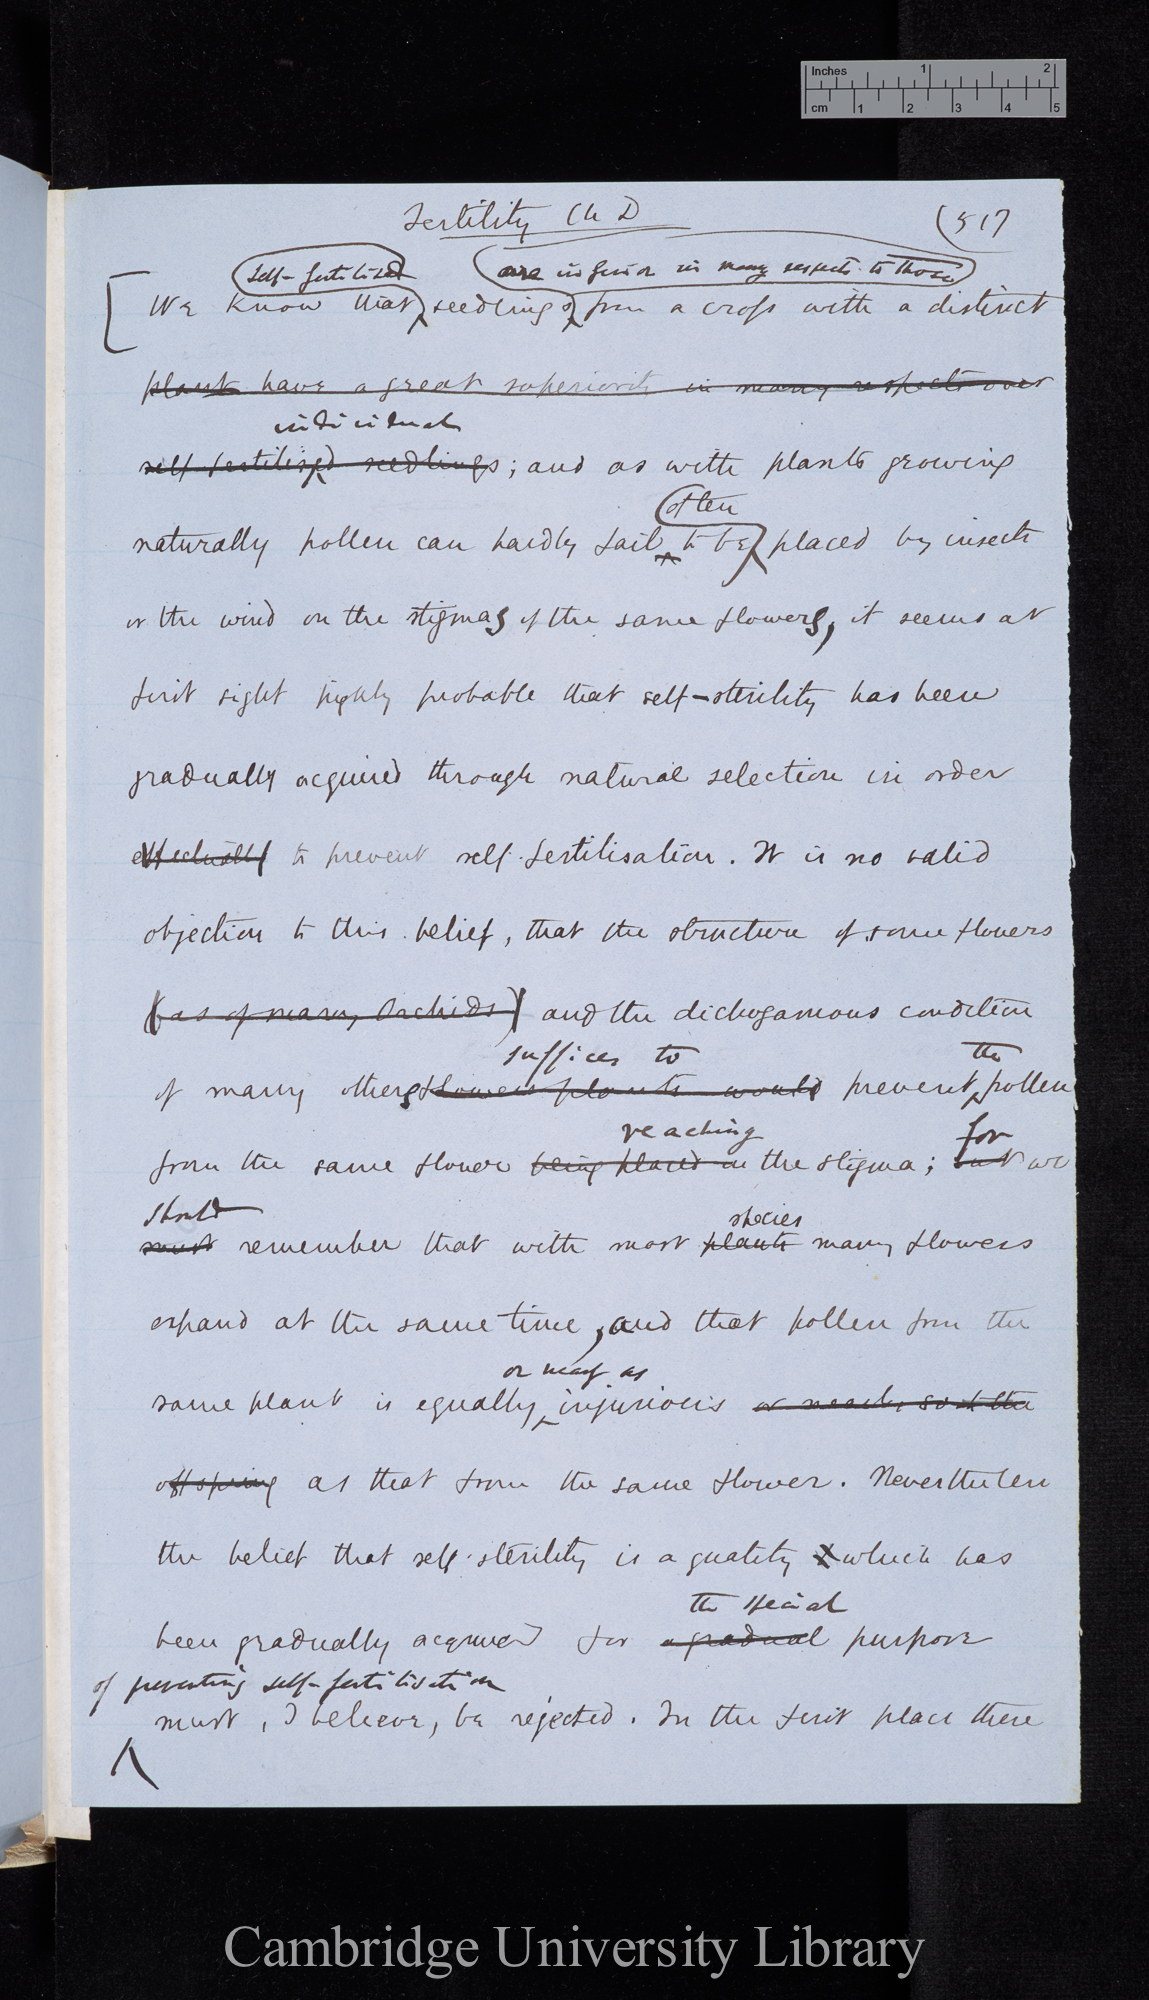 Inches 1 2
cm 1 2 3 4 5
Fertility Ch D
(517
self-fertilised are inferior in many respects to those
We know that seedlings from a cross with a distinct
plant have a great superiority in many respects over
individual
self-fertilized seedlings; and as with plants growing
often
naturally pollen can hardly fail to be placed by insects
or the wind on the stigmas of the same flowers, it seems at
first sight highly probable that self-sterility has been
gradually acquired through natural selection in order
effectually to prevent self-fertilisation. It is no valid
objection to this belief, that the structure of some flowers
(as of many Orchids) and the dichogamous condition
suffices to the
of many others flowers plants would prevent pollen
reaching for
from the same flower being placed on the stigma; but we
should species
must remember that with most plants many flowers
expand at the same time, and that pollen from the
or nearly as
same plant is equally injurious or nearly so to the
offspring as that from the same flower. Nevertheless
the belief that self-sterility is a quality which has
the special
been gradually acquired for a gradual purpose
of preventing self-fertilisation
must, I believe, be rejected. In the first place there
Cambridge University Library